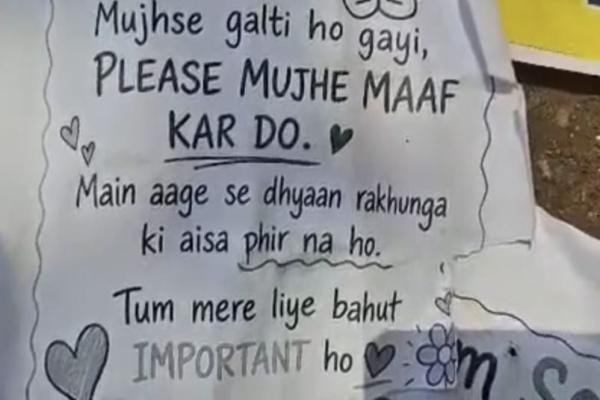 Mujhse galti ho gayi,
PLEASE MUJHE MAAF
KAR DO.
Main aage se dhyaan rakhunga
ki aisa phir na ho.
Tum mere liye bahut
IMPORTANT ho